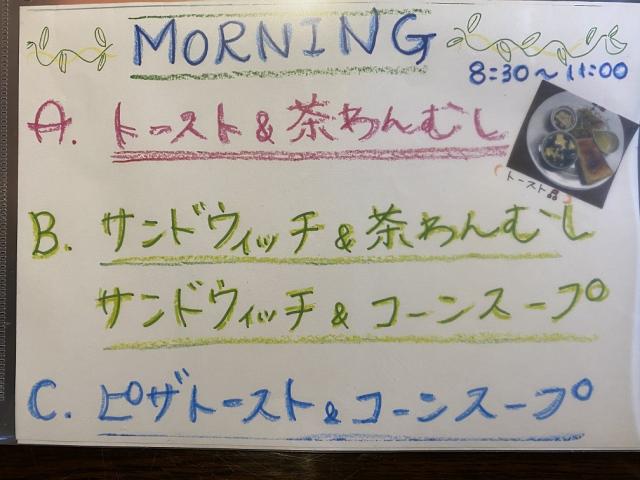 MORNING
8:30～11:00
A. トースト&茶わんむし
トースト
B. サンドウィッチ&茶わんむし
サンドウィッチ&コーンスープ
C. ピザトースト&コーンスープ